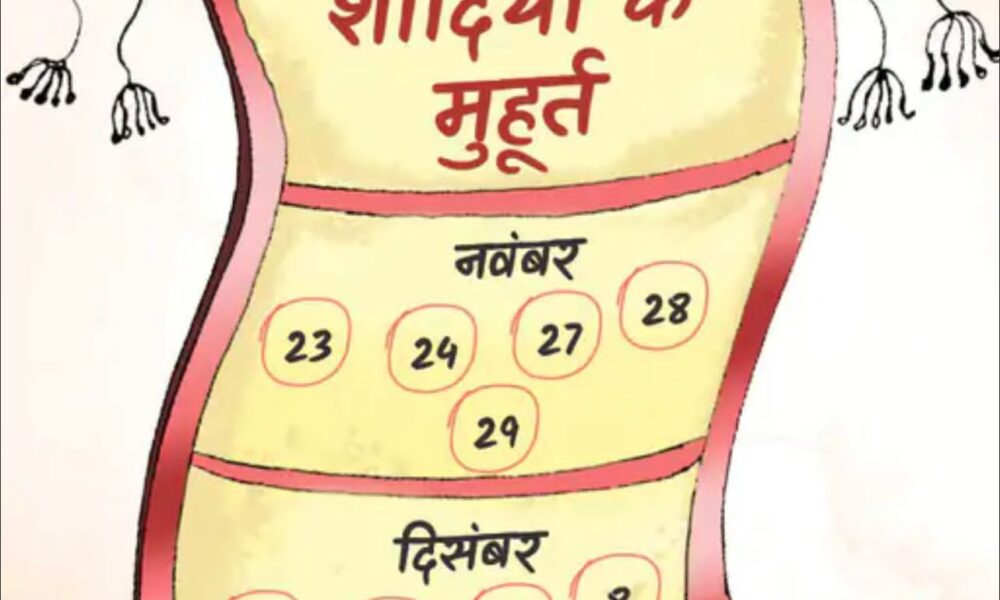 शादियों के
मुहूर्त
नवंबर
23 24 27 28
29
दिसंबर